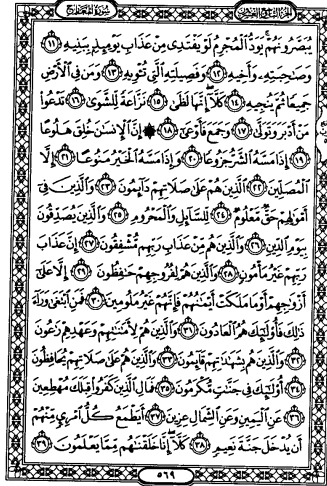 الجزء التاسع والعشرون سورة المعارج
يُبَصَّرُونَهُمْ يَوَدُّ الْمُجْرِمُ لَوْ يَفْتَدِي مِنْ عَذَابِ يَوْمِئِذٍ بِبَنِيهِ ١١
وَصَاحِبَتِهِ وَأَخِيهِ ١٢ وَفَصِيلَتِهِ الَّتِي تُؤْوِيهِ ١٣ وَمَنْ فِي الْأَرْضِ
جَمِيعًا ثُمَّ يُنْجِيهِ ١٤ كَلَّا إِنَّهَا لَظَى ١٥ نَزَّاعَةً لِلشَّوَى ١٦ تَدْعُوا
مَنْ أَدْبَرَ وَتَوَلَّى ١٧ وَجَمَعَ فَأَوْعَى ١٨ ۞ إِنَّ الْإِنْسَانَ خُلِقَ هَلُوعًا
١٩ إِذَا مَسَّهُ الشَّرُّ جَزُوعًا ٢٠ وَإِذَا مَسَّهُ الْخَيْرُ مَنُوعًا ٢١ إِلَّا
الْمُصَلِّينَ ٢٢ الَّذِينَ هُمْ عَلَى صَلَاتِهِمْ دَائِمُونَ ٢٣ وَالَّذِينَ فِي
أَمْوَالِهِمْ حَقٌّ مَعْلُومٌ ٢٤ لِلسَّائِلِ وَالْمَحْرُومِ ٢٥ وَالَّذِينَ يُصَدِّقُونَ
بِيَوْمِ الدِّينِ ٢٦ وَالَّذِينَ هُمْ مِنْ عَذَابِ رَبِّهِمْ مُشْفِقُونَ ٢٧ إِنَّ عَذَابَ
رَبِّهِمْ غَيْرُ مَأْمُونٍ ٢٨ وَالَّذِينَ هُمْ لِفُرُوجِهِمْ حَافِظُونَ ٢٩ إِلَّا عَلَى
أَزْوَاجِهِمْ أَوْ مَا مَلَكَتْ أَيْمَانُهُمْ فَإِنَّهُمْ غَيْرُ مَلُومِينَ ٣٠ فَمَنِ ابْتَغَى وَرَاءَ
ذَلِكَ فَأُولَئِكَ هُمُ الْعَادُونَ ٣١ وَالَّذِينَ هُمْ لِأَمَانَاتِهِمْ وَعَهْدِهِمْ رَاعُونَ
٣٢ وَالَّذِينَ هُمْ بِشَهَادَاتِهِمْ قَائِمُونَ ٣٣ وَالَّذِينَ هُمْ عَلَى صَلَاتِهِمْ يُحَافِظُونَ
٣٤ أُولَئِكَ فِي جَنَّاتٍ مُكْرَمُونَ ٣٥ فَمَالِ الَّذِينَ كَفَرُوا قِبَلَكَ مُهْطِعِينَ
٣٦ عَنِ الْيَمِينِ وَعَنِ الشِّمَالِ عِزِينَ ٣٧ أَيَطْمَعُ كُلُّ امْرِئٍ مِنْهُمْ
أَنْ يُدْخَلَ جَنَّةَ نَعِيمٍ ٣٨ كَلَّا إِنَّا خَلَقْنَاهُمْ مِمَّا يَعْلَمُونَ ٣٩
٥٦٩